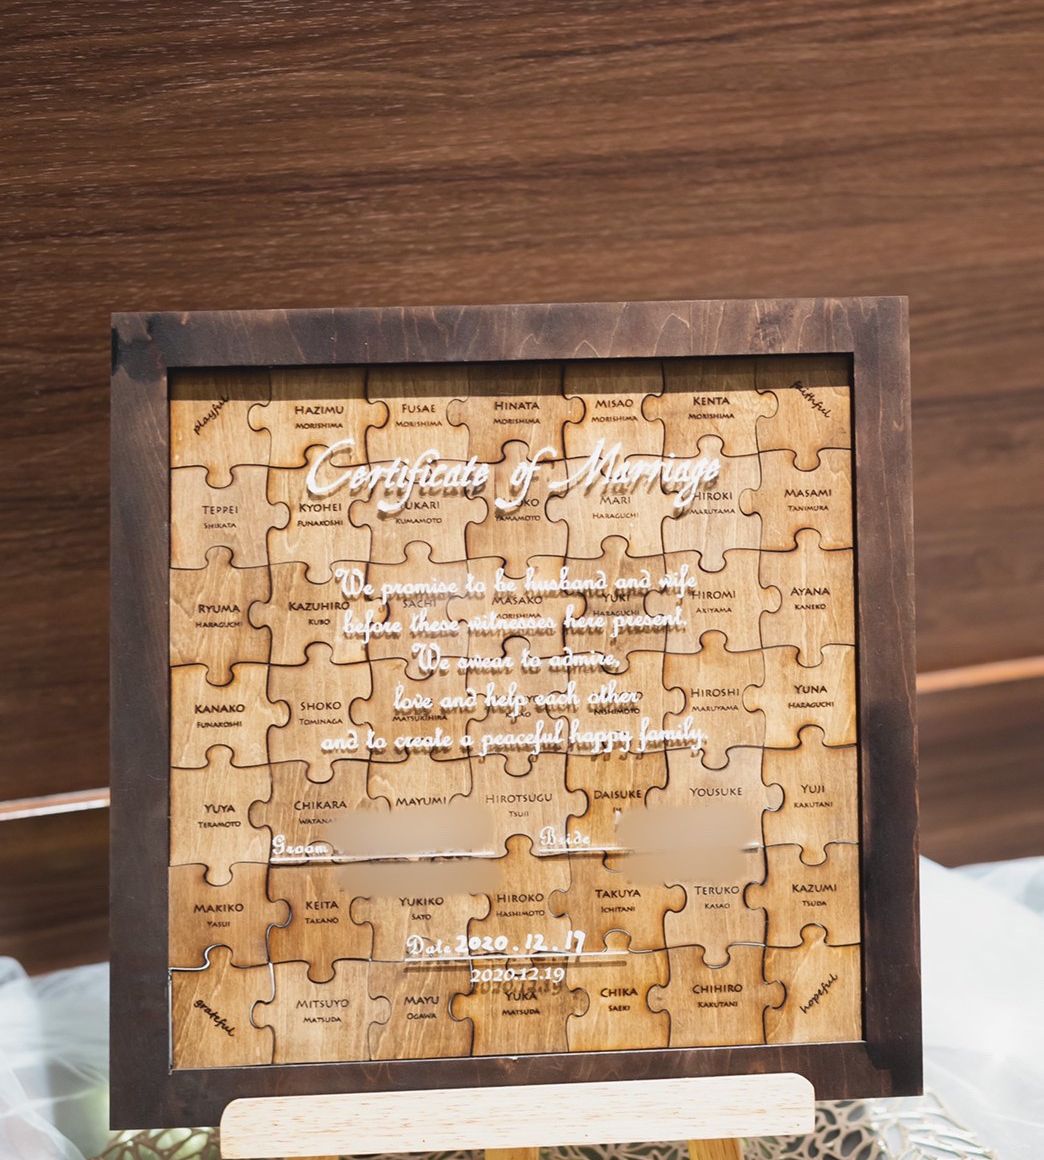 playful
HAZIMU
MORISHIMA
FUSAE
MORISHIMA
HINATA
MORISHIMA
MISAO
MORISHIMA
KENTA
MORISHIMA
faithful
Certificate of Marriage
TEPPEI
SHIKATA
KYOHEI
FUNAKOSHI
KUMAMOTO
YAMAMOTO
MARI
HARAGUCHI
HIROKI
MARUYAMA
MASAMI
TANIMURA
We promise to be husband and wife
before these witnesses here present.
We swear to admire,
love and help each other
and to create a peaceful happy family.
RYUMA
HARAGUCHI
KAZUHIRO
KUBO
SACHI
MASAKO
MORISHIMA
YUKI
HARAGUCHI
HIROMI
AKIYAMA
AYANA
KANEKO
KANAKO
FUNAKOSHI
SHOKO
TOMINAGA
MATSUKIHIRA
NISHIMOTO
HIROSHI
MARUYAMA
YUNA
HARAGUCHI
YUYA
TERAMOTO
CHIKARA
MAYUMI
HIROTSUGU
TSUJI
DAISUKE
YOUSUKE
YUJI
KAKUTANI
Groom
Bride
MAKIKO
YASUI
KEITA
TAKANO
YUKIKO
SATO
HIROKO
HASHIMOTO
TAKUYA
ICHITANI
TERUKO
KASAO
KAZUMI
TSUDA
Date 2020.12.19
2020.12.19
grateful
MITSUYO
MATSUDA
MAYU
OGAWA
YUKA
MATSUDA
CHIKA
SAEKI
CHIHIRO
KAKUTANI
hopeful